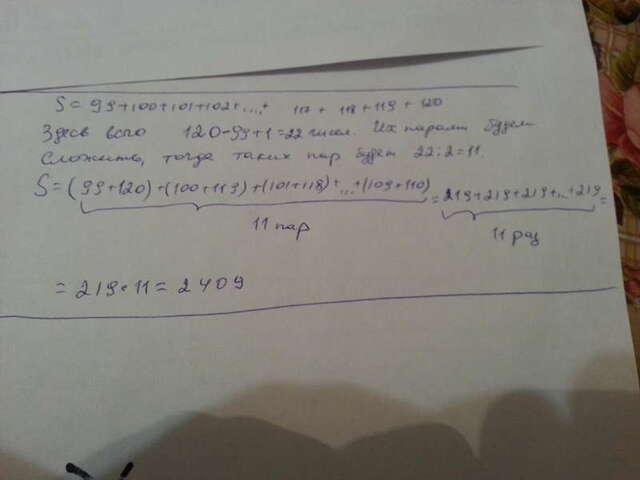 S = 99+100+101+102+...+ 117 + 118 + 119 + 120
Здесь всего 120-99+1=22 чисел. Их парами будем
сложить, тогда таких пар будет 22:2=11.
S=(99+120)+(100+119)+(101+118)+...+(109+110)=219+219+219+...+219=
11 пар 11 раз
= 219·11 = 2409